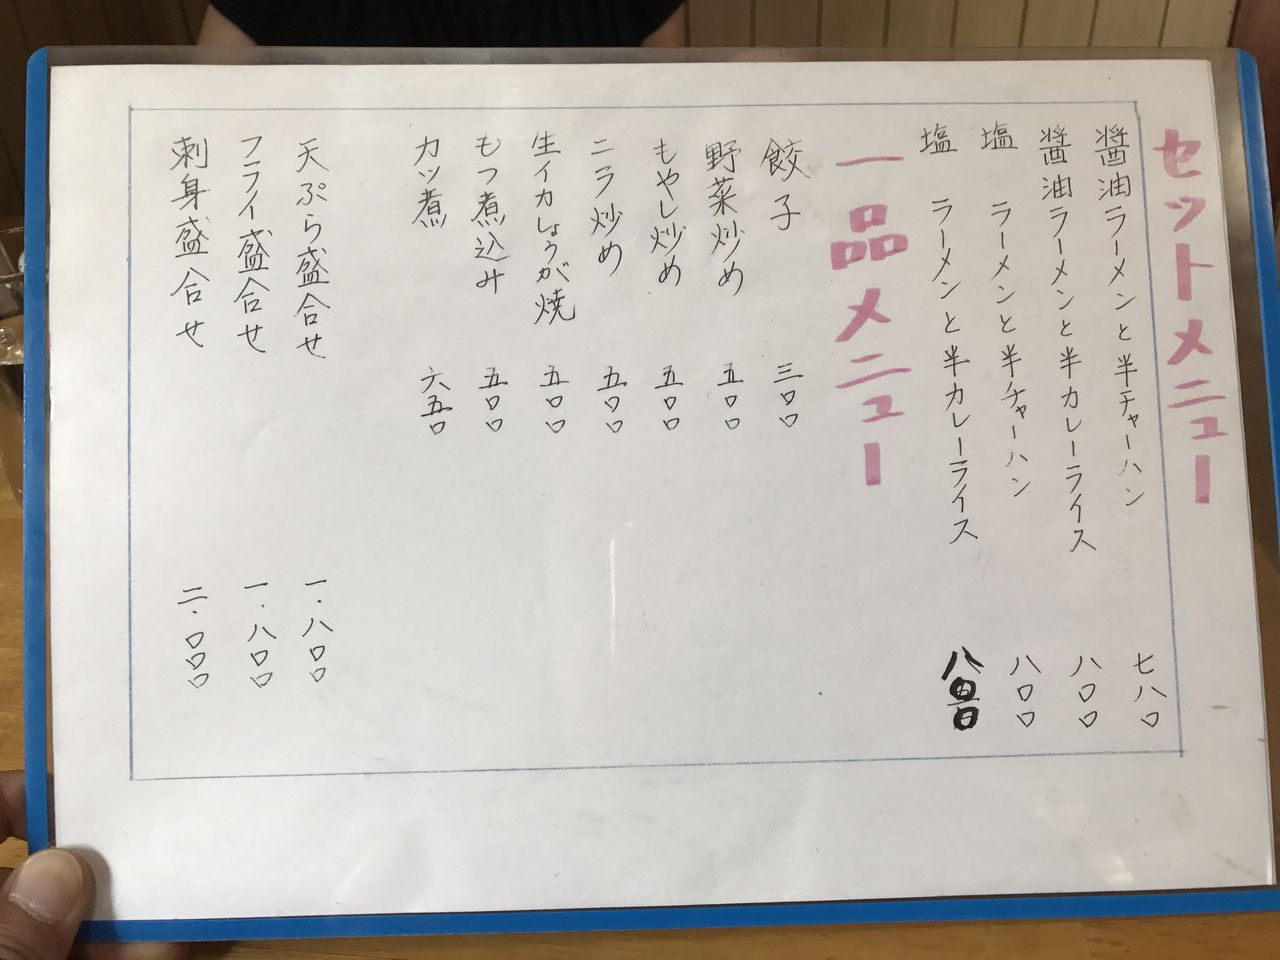 セットメニュー
醤油ラーメンと半チャーハン 七八〇
醤油ラーメンと半カレーライス 八〇〇
塩 ラーメンと半チャーハン 八〇〇
塩 ラーメンと半カレーライス
一品メニュー
餃子 三〇〇
野菜炒め 五〇〇
もやし炒め 五〇〇
ニラ炒め 五〇〇
生イカしょうが焼 五〇〇
もつ煮込み 五〇〇
カツ煮 六五〇
天ぷら盛合せ 一.八〇〇
フライ盛合せ 一.八〇〇
刺身盛合せ 二.〇〇〇